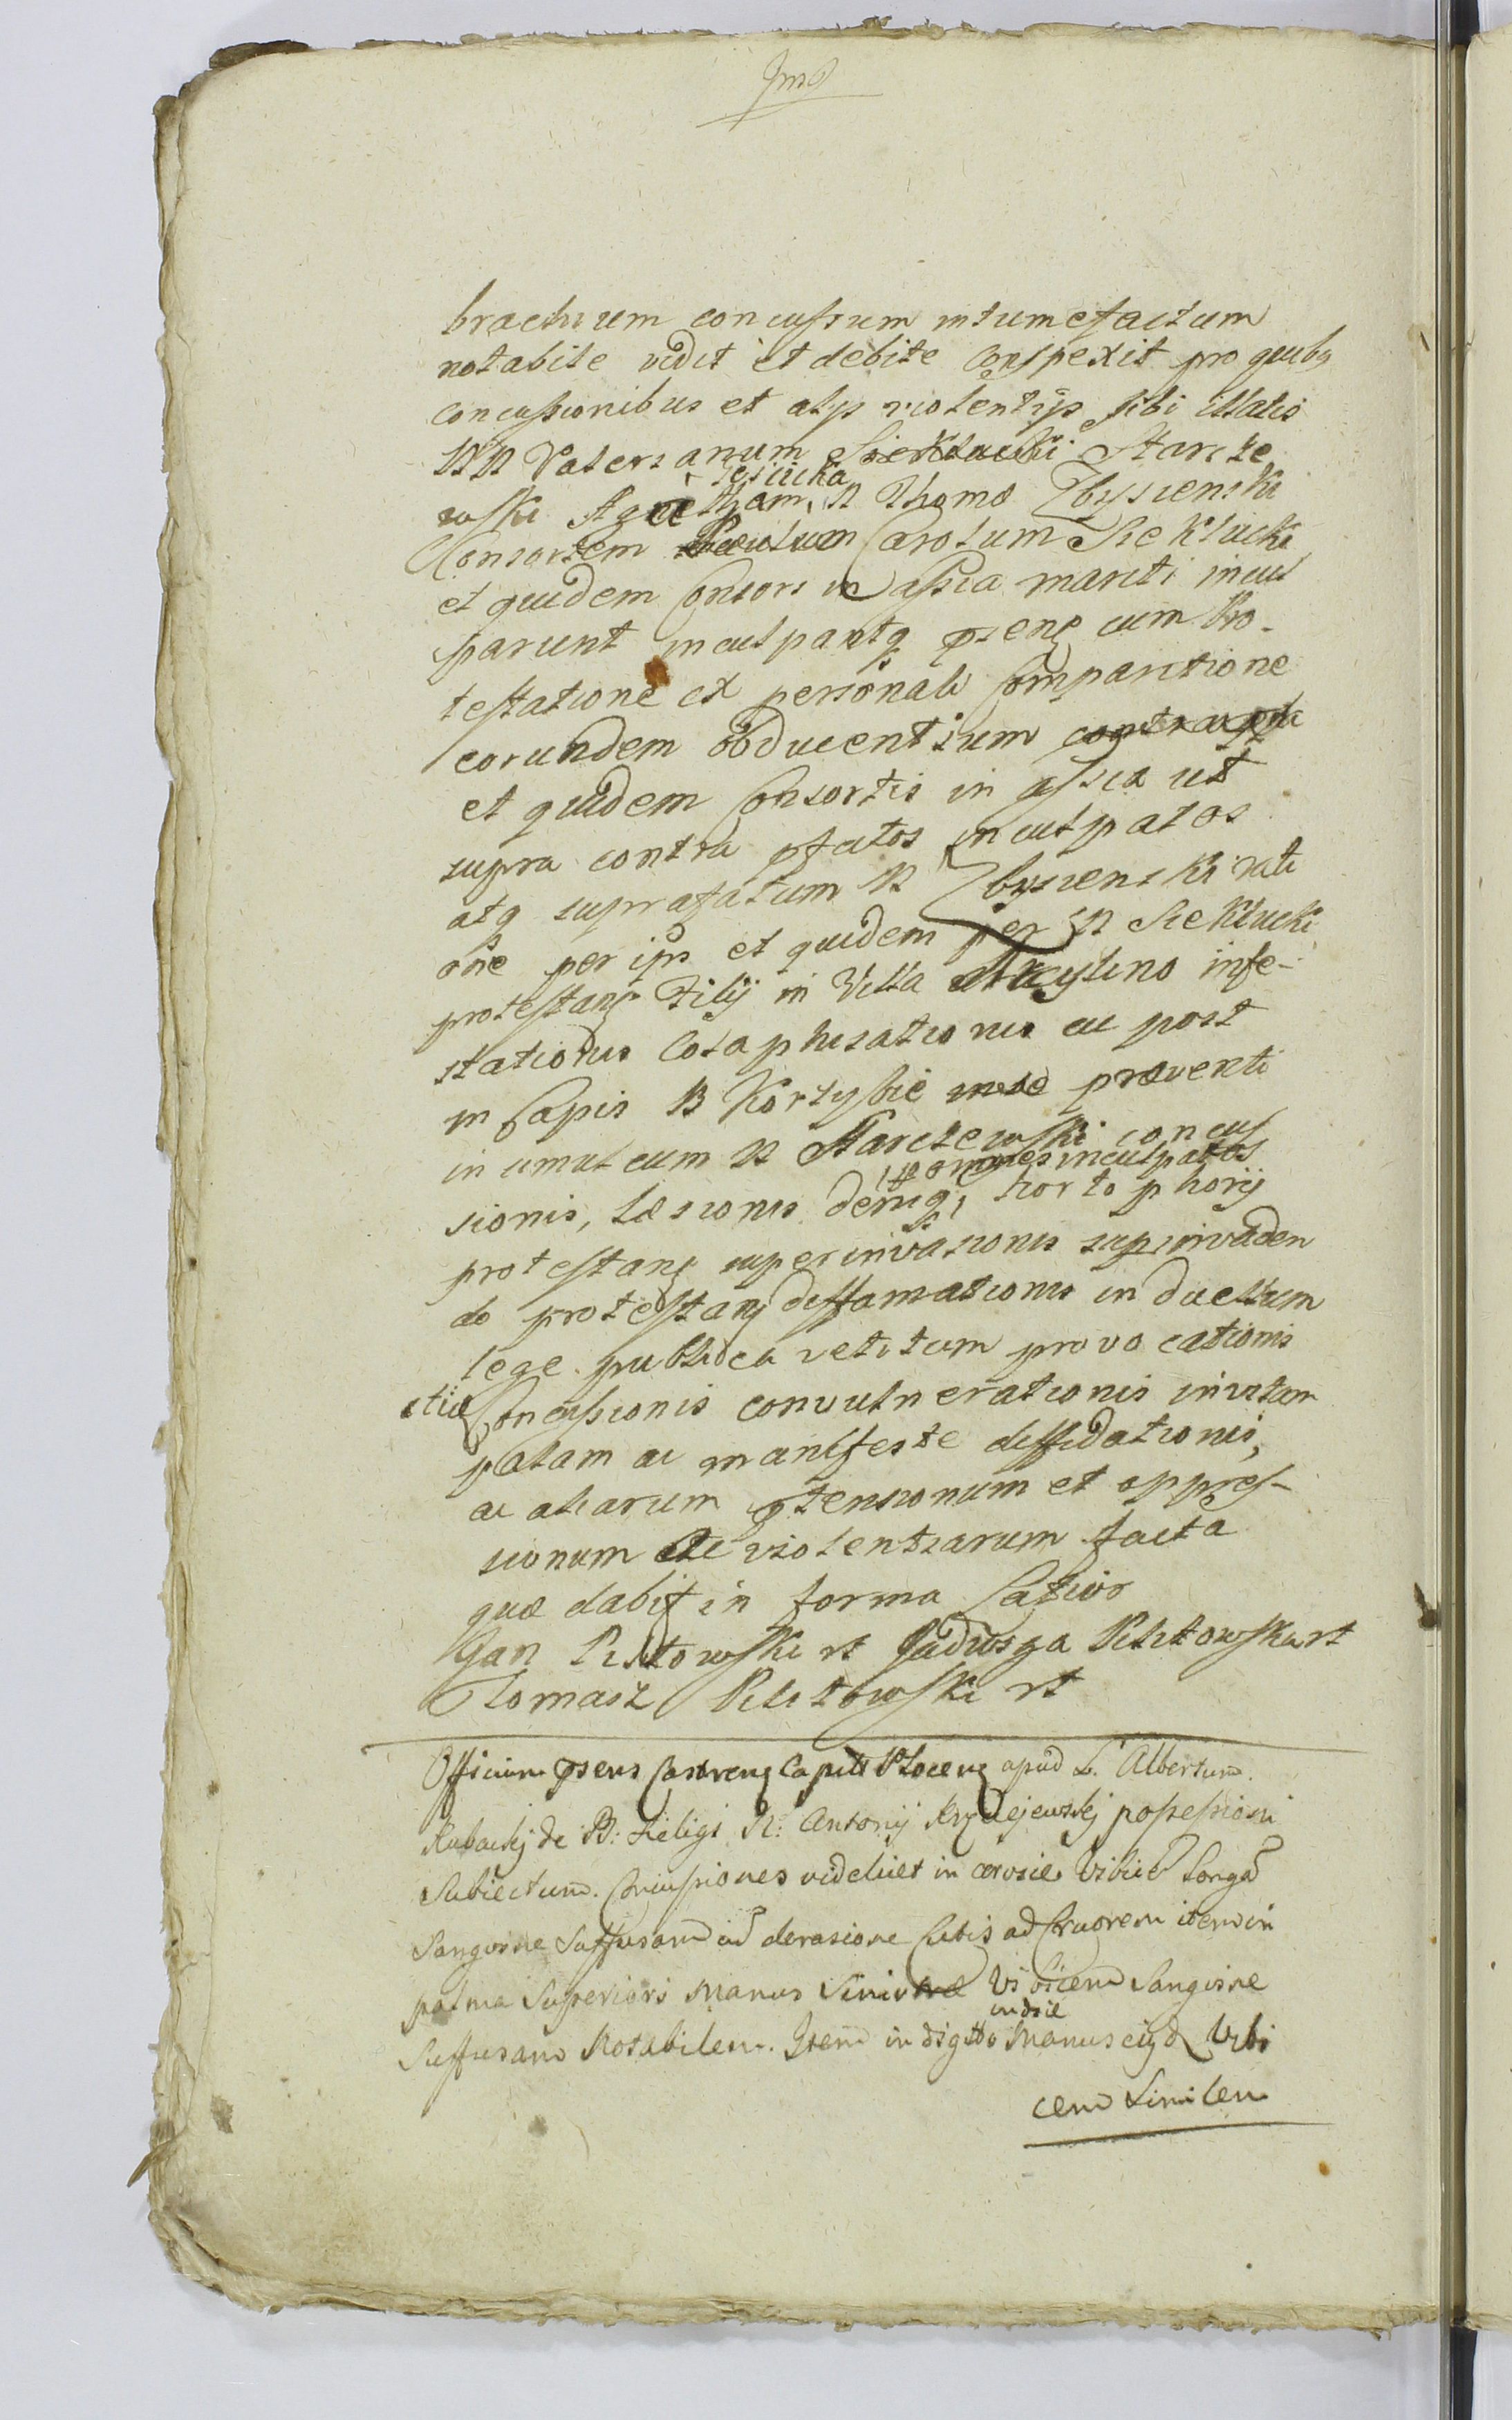 brachium concussum intumefactum
notabile vidit et debite conspexit pro quibq
concussionibus et alys violentijs sibi illatis
NN Valerianum Siekłucki Starcze
wski Agnetham N Thomæ Zbysienski
Consortem Carolum Siekłucki
et quidem Consors in assia mariti incul
parunt inculpantq pseng cum Pro-
testatione ex personali Comparitione
eorundem obducentium
et quidem Consortis in assia ut
supra contra pfatos inculpatos
atq suprafatum N Zbysienski rati
one per ips et quidem per N Siekłucki
protestang Filij in Villa infe-
stationis Colaphisationis ac post
in Capis B Korzybie præventi
in simul cum N Starczewski concus
omnes inculpatos
sionis, læsionis deniq, hortophorij
protestang superinvasionis supinvaden
do protestang diffamationis in duellum
lege publica vetitum provocationis
Concussionis convulnerationis in vitam
palam ac manifeste diffidationis,
ac aliarum ptensionum et oppres-
sionum ac violentiarum facta
quæ dabit in forma Latior
Jan Pilitowski rt Jadwiga Pilitowska rt
Tomasz Pilitowski rt
Officium psens Castreng Capitt Ploceng apud L. Albertum
de B: Religi N: Antonij possessioni
Subiectum. Concussiones videlicet in Vibice Longa
Sanguine Suffusam cu derasione Cutis ad Cruorem item in
palma Superiori Manus Sinistræ Vibicem Sanguine
indice
Suffusam Notabilem. Item in digitto Manus eiqd Vibi
cem Similem